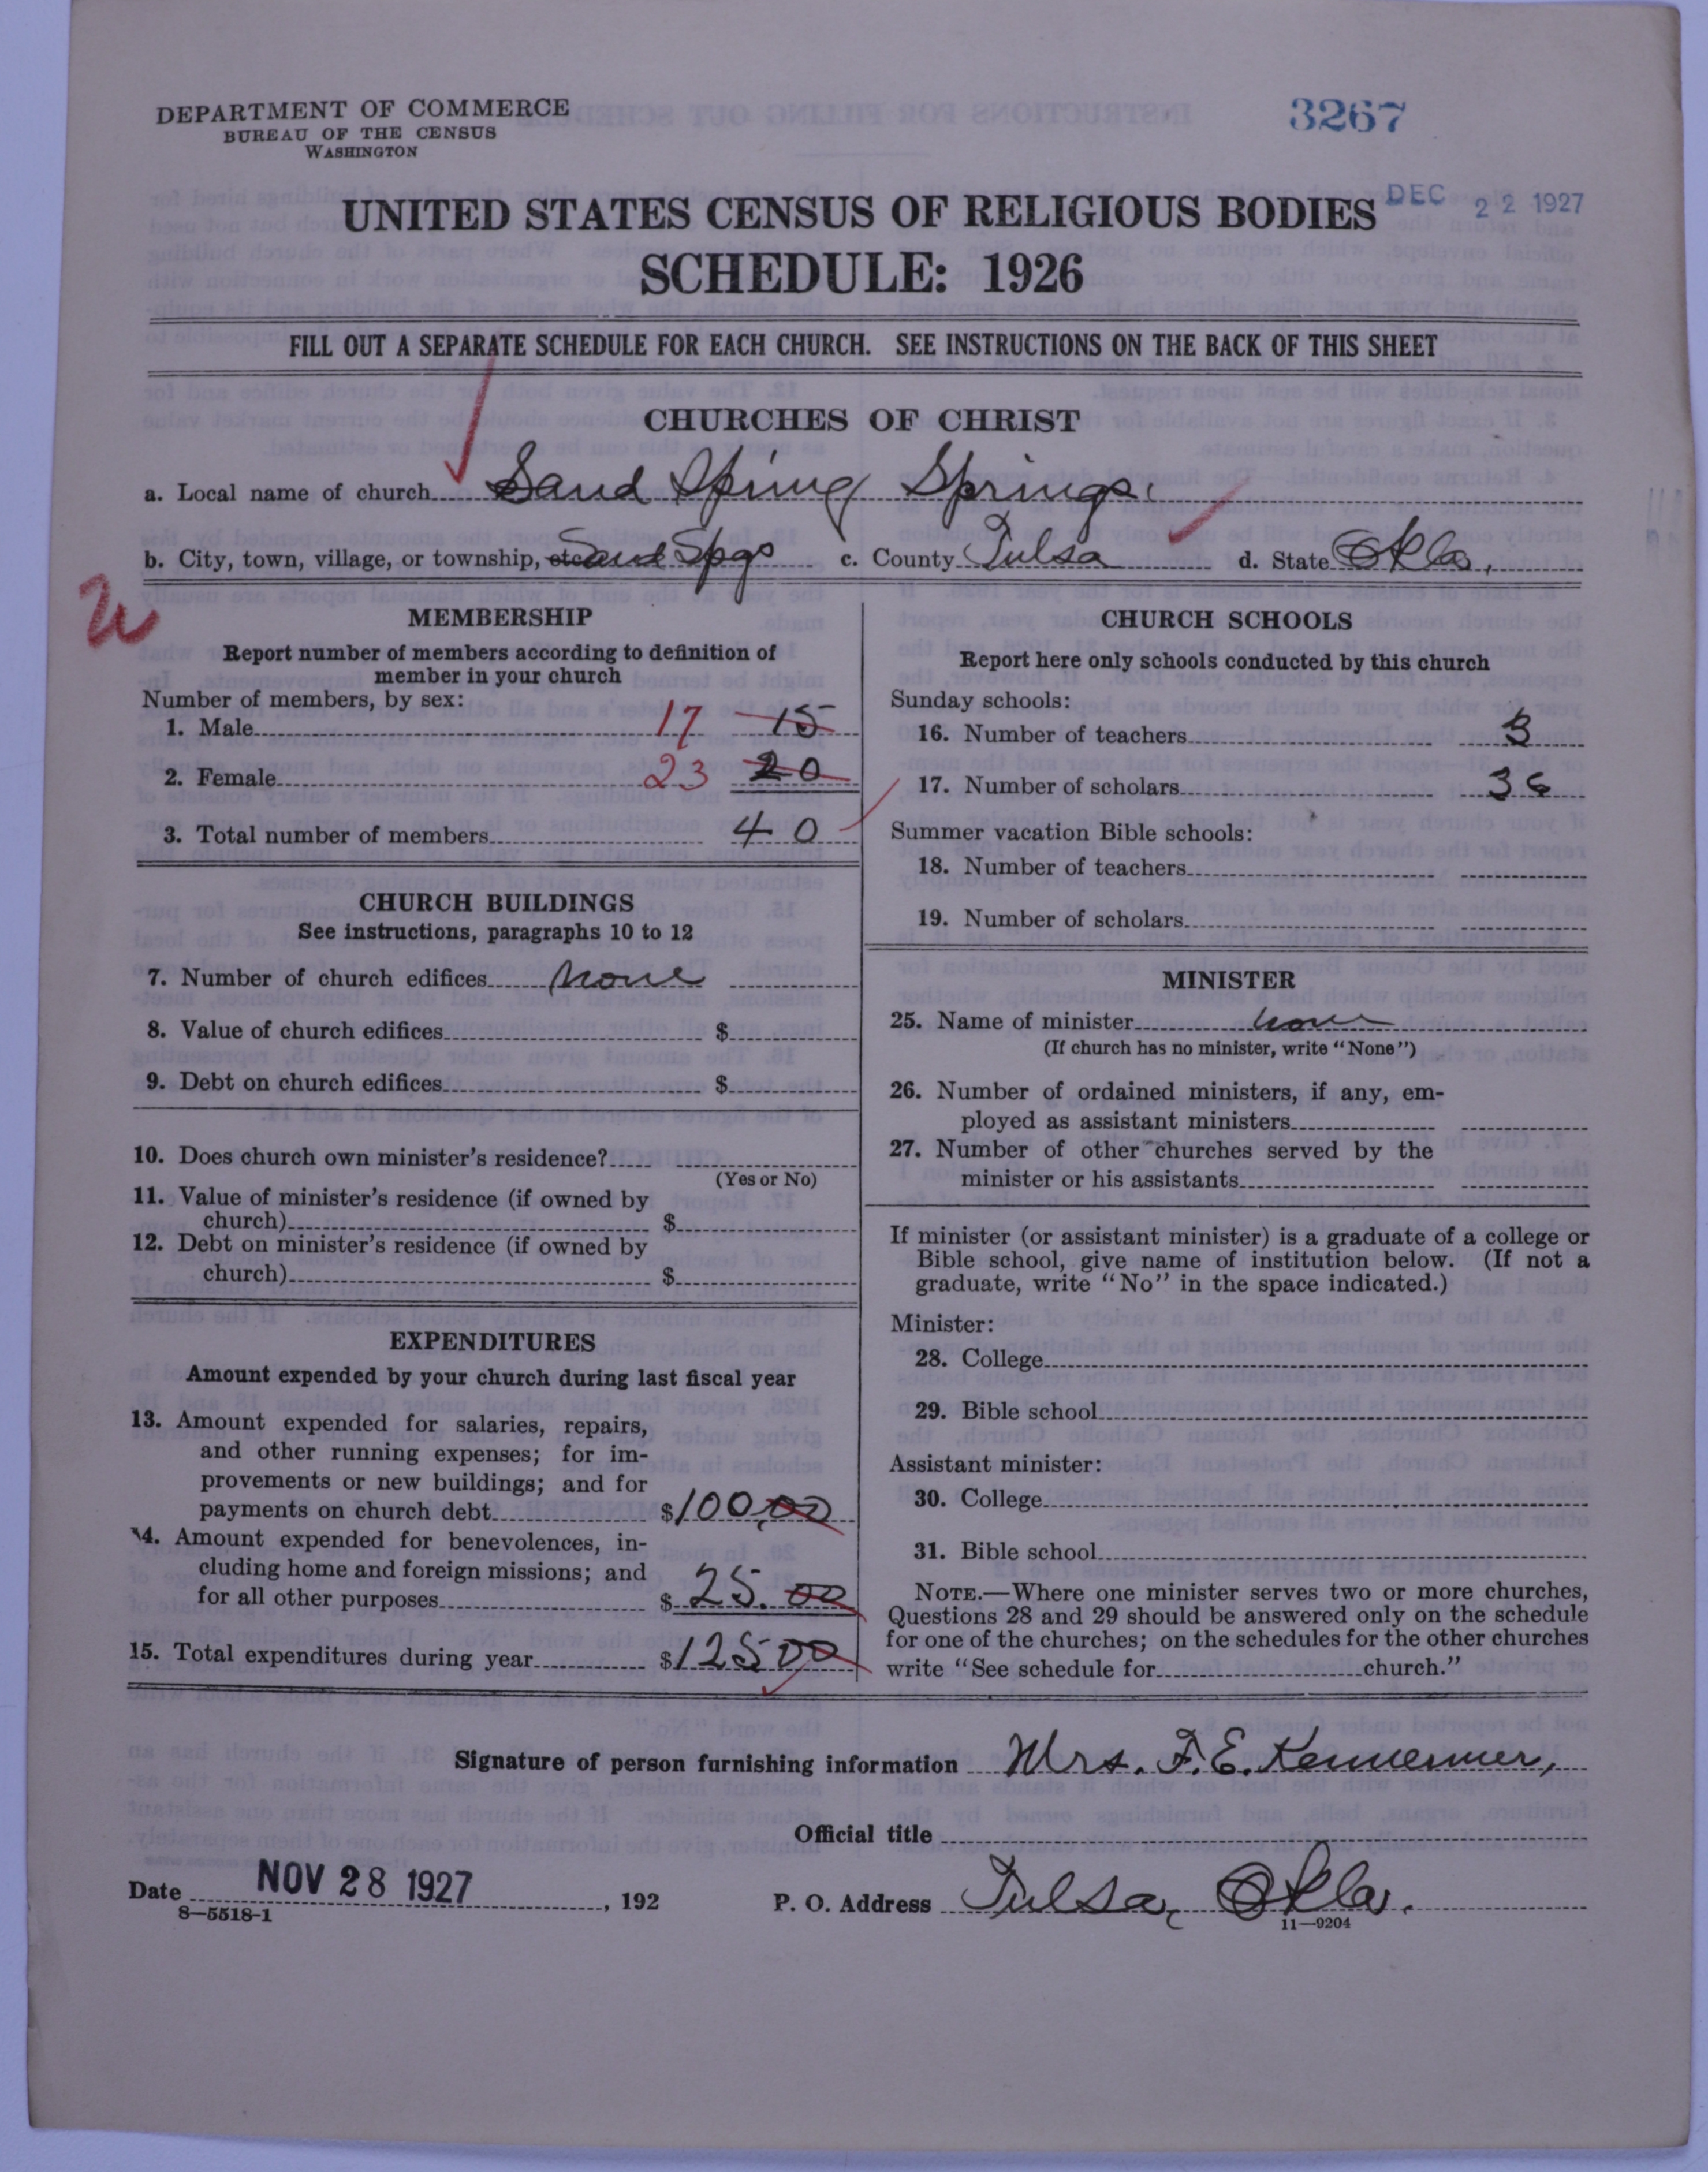 DEPARTMENT OF COMMERCE
BUREAU OF THE CENSUS
WASHINGTON
3267
DEC 22 1927
UNITED STATES CENSUS OF RELIGIOUS BODIES
SCHEDULE: 1926
FILL OUT A SEPARATE SCHEDULE FOR EACH CHURCH. SEE INSTRUCTIONS ON THE BACK OF THIS SHEET
CHURCHES OF CHRIST
a. Local name of church Sand Spring Springs.
b. City, town, village, or township, etc Sand Spgs c. County Tulsa d. State Okla.
MEMBERSHIP
Report number of members according to definition of
member in your church
Number of members, by sex:
1. Male 17 15
2. Female 23 20
3. Total number of members 40
CHURCH BUILDINGS
See instructions, paragraphs 10 to 12
7. Number of church edifices none
8. Value of church edifices $
9. Debt on church edifices $
10. Does church own minister's residence?
(Yes or No)
11. Value of minister's residence (if owned by
church) $
12. Debt on minister's residence (if owned by
church) $
EXPENDITURES
Amount expended by your church during last fiscal year
13. Amount expended for salaries, repairs,
and other running expenses; for im-
provements or new buildings; and for
payments on church debt $100.00
14. Amount expended for benevolences, in-
cluding home and foreign missions; and
for all other purposes $ 25.00
15. Total expenditures during year $125 00
CHURCH SCHOOLS
Report here only schools conducted by this church
Sunday schools:
16. Number of teachers 3
17. Number of scholars 36
Summer vacation Bible schools:
18. Number of teachers
19. Number of scholars
MINISTER
25. Name of minister none
(If church has no minister, write "None")
26. Number of ordained ministers, if any, em-
ployed as assistant ministers
27. Number of other churches served by the
minister or his assistants
If minister (or assistant minister) is a graduate of a college or
Bible school, give name of institution below. (If not a
graduate, write "No" in the space indicated.)
Minister:
28. College
29. Bible school
Assistant minister:
30. College
31. Bible school
NOTE.—Where one minister serves two or more churches,
Questions 28 and 29 should be answered only on the schedule
for one of the churches; on the schedules for the other churches
write "See schedule for church."
Signature of person furnishing information Mrs. F. E. Kennemer,
Official title
Date NOV 28 1927, 192 P. O. Address Tulsa, Okla.
8—5518-1
11—9204